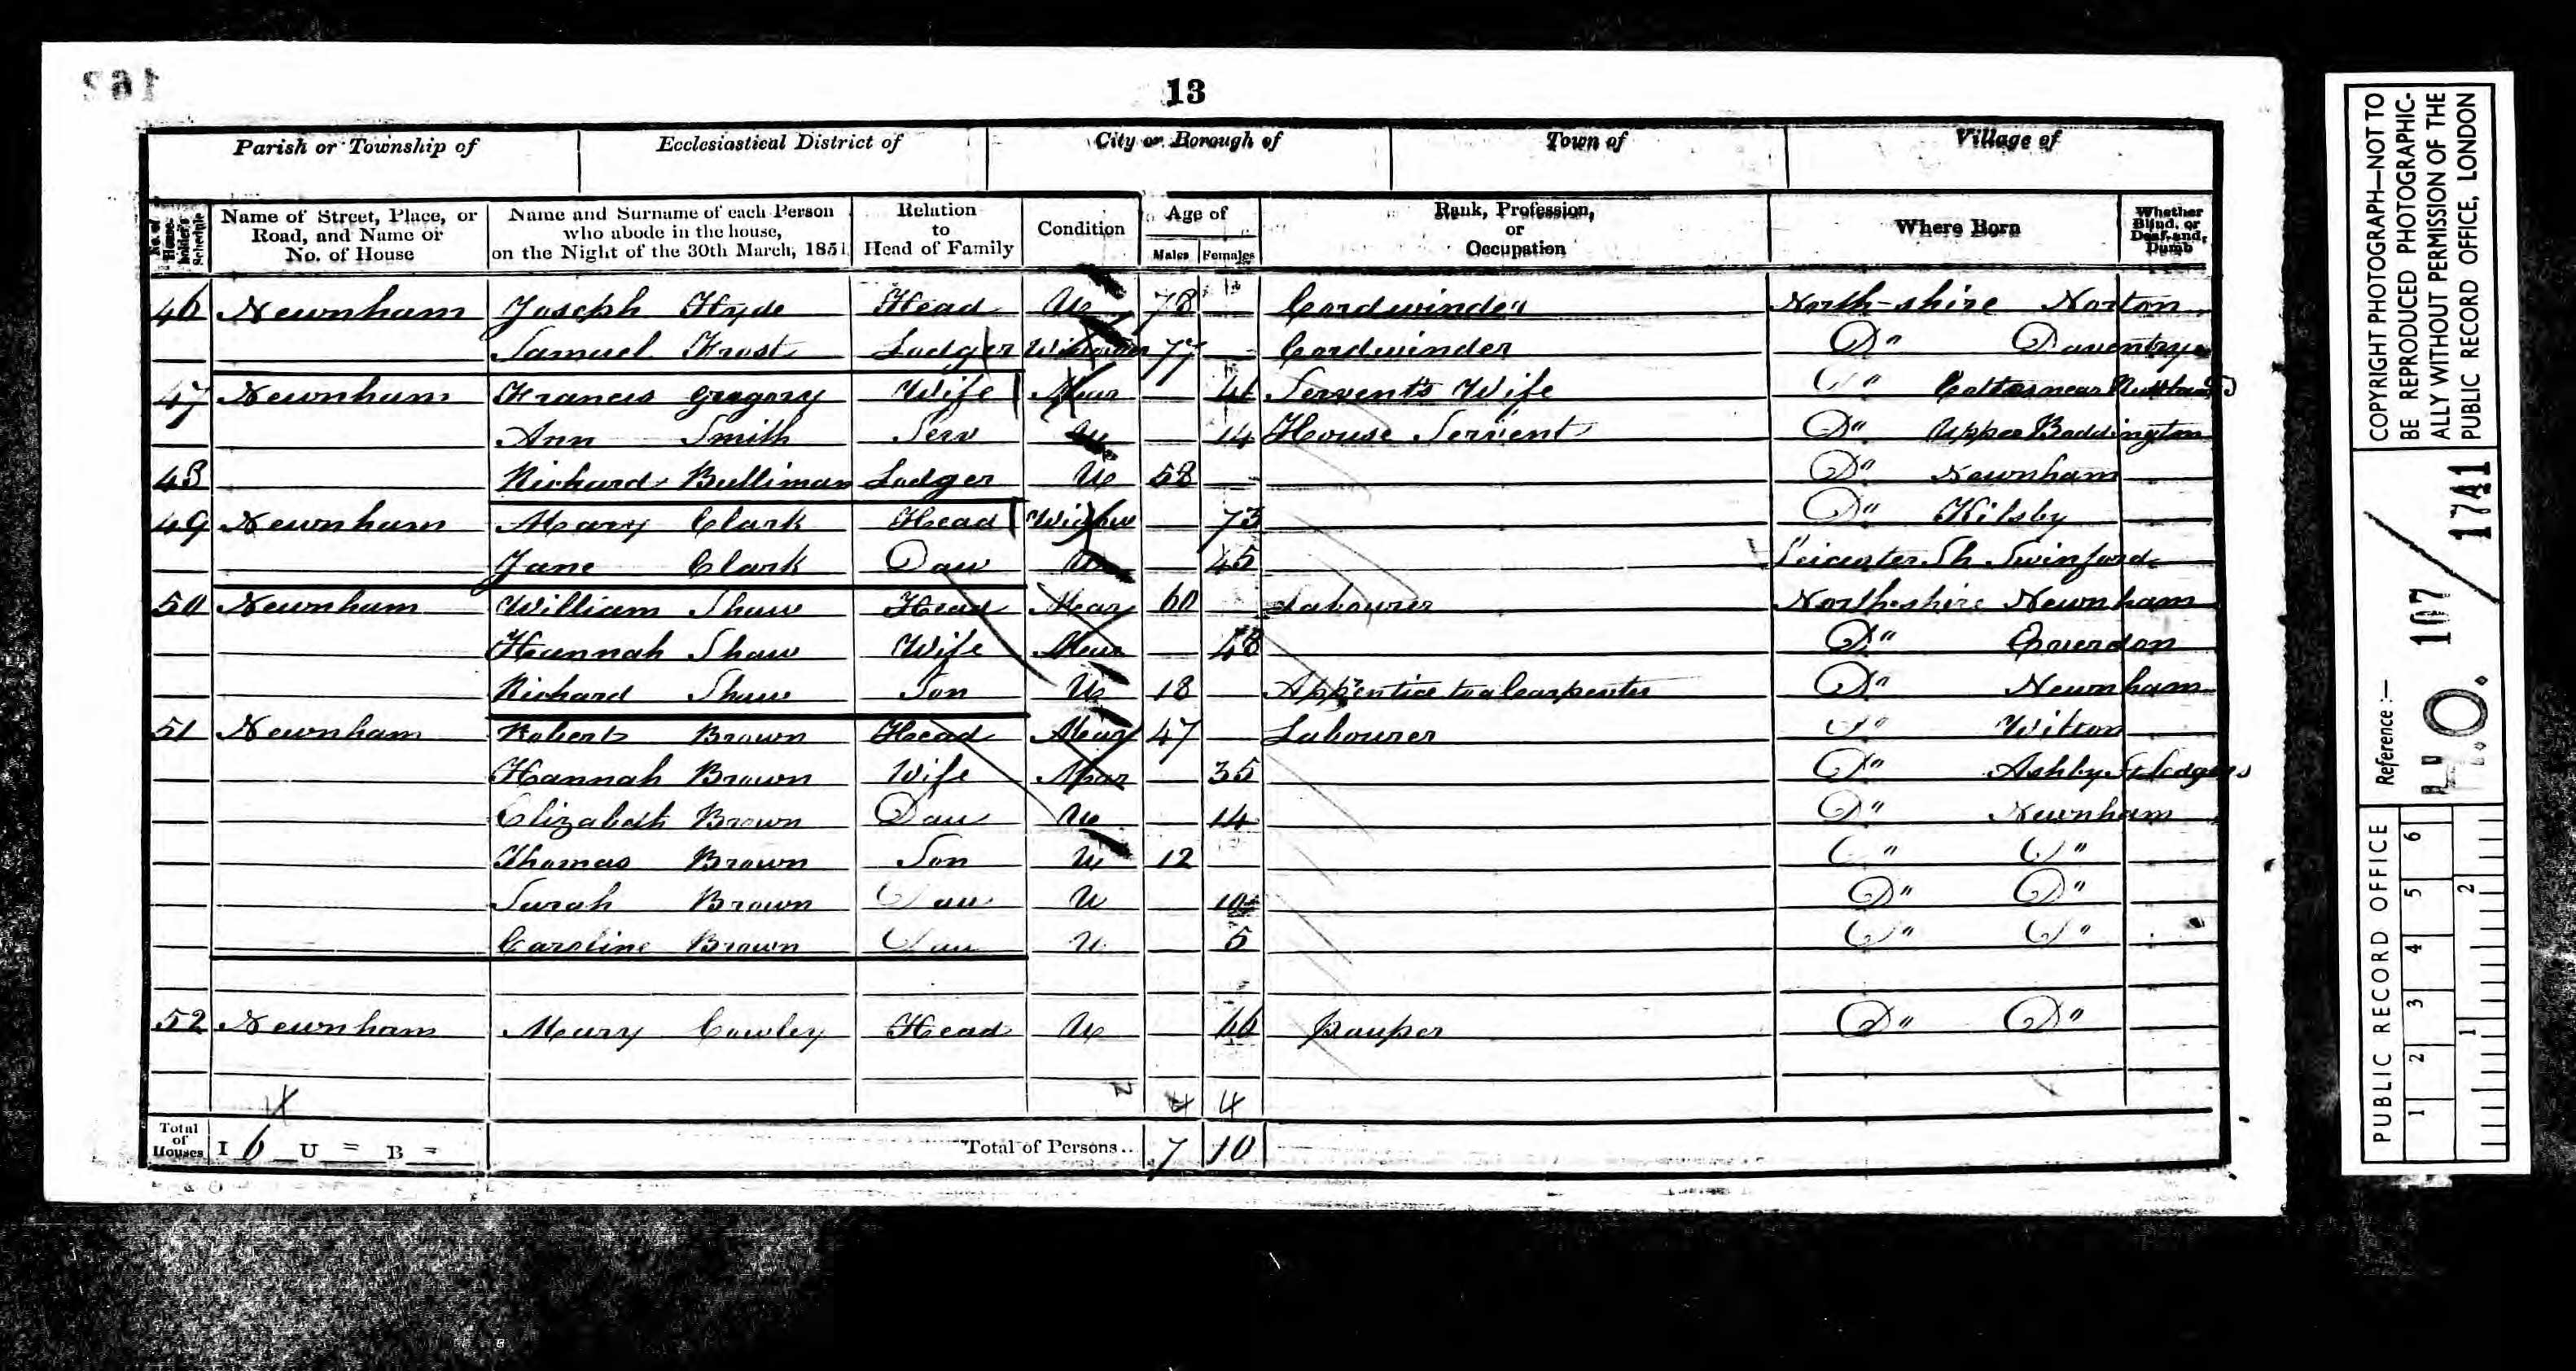 162
13
Parish or Township of Ecclesiastical District of City or Borough of Town of Village of
No. of House-holder's Schedule Name of Street, Place, or Road, and Name or No. of House Name and Surname of each Person who abode in the house, on the Night of the 30th March, 1851 Relation to Head of Family Condition Age of Males Females Rank, Profession, or Occupation Where Born Whether Blind, or Deaf-and-Dumb
46 Newnham Joseph Hyde Head U 78 Cordwinder North-shire Norton
Samuel Frost Lodger Widower 77 Cordwinder Do Daventry
47 Newnham Francis Gregory Wife Mar 41 Servent's Wife Do near
Ann Smith Serv U 14 House Servent Do Upper Boddington
48 Richard Bulliman Lodger U 58 Do Newnham
49 Newnham Mary Clark Head Widow 73 Do Kilsby
Jane Clark Daw U 45 Leicester Sh Swinford
50 Newnham William Shaw Head Mar 60 Labourer North-shire Newnham
Hannah Shaw Wife Mar 48 Do Everdon
Richard Shaw Son U 18 Apprentice to a Carpenter Do Newnham
51 Newnham Robert Brown Head Mar 47 Labourer Do Wilton
Hannah Brown Wife Mar 35 Do Ashby St Ledgers
Elizabeth Brown Dau U 14 Do Newnham
Thomas Brown Son U 12 Do Do
Sarah Brown Dau U 10 Do Do
Caroline Brown Dau U 5 Do Do
52 Newnham Mary Cowley Head U 46 pauper Do Do
4 4
Total of Houses I 6 U = B = Total of Persons.. 7 10
COPYRIGHT PHOTOGRAPH—NOT TO
BE REPRODUCED PHOTOGRAPHIC-
ALLY WITHOUT PERMISSION OF THE
PUBLIC RECORD OFFICE, LONDON
Reference :— H.O. 107 / 1741
PUBLIC RECORD OFFICE 1 2 3 4 5 6
1 2